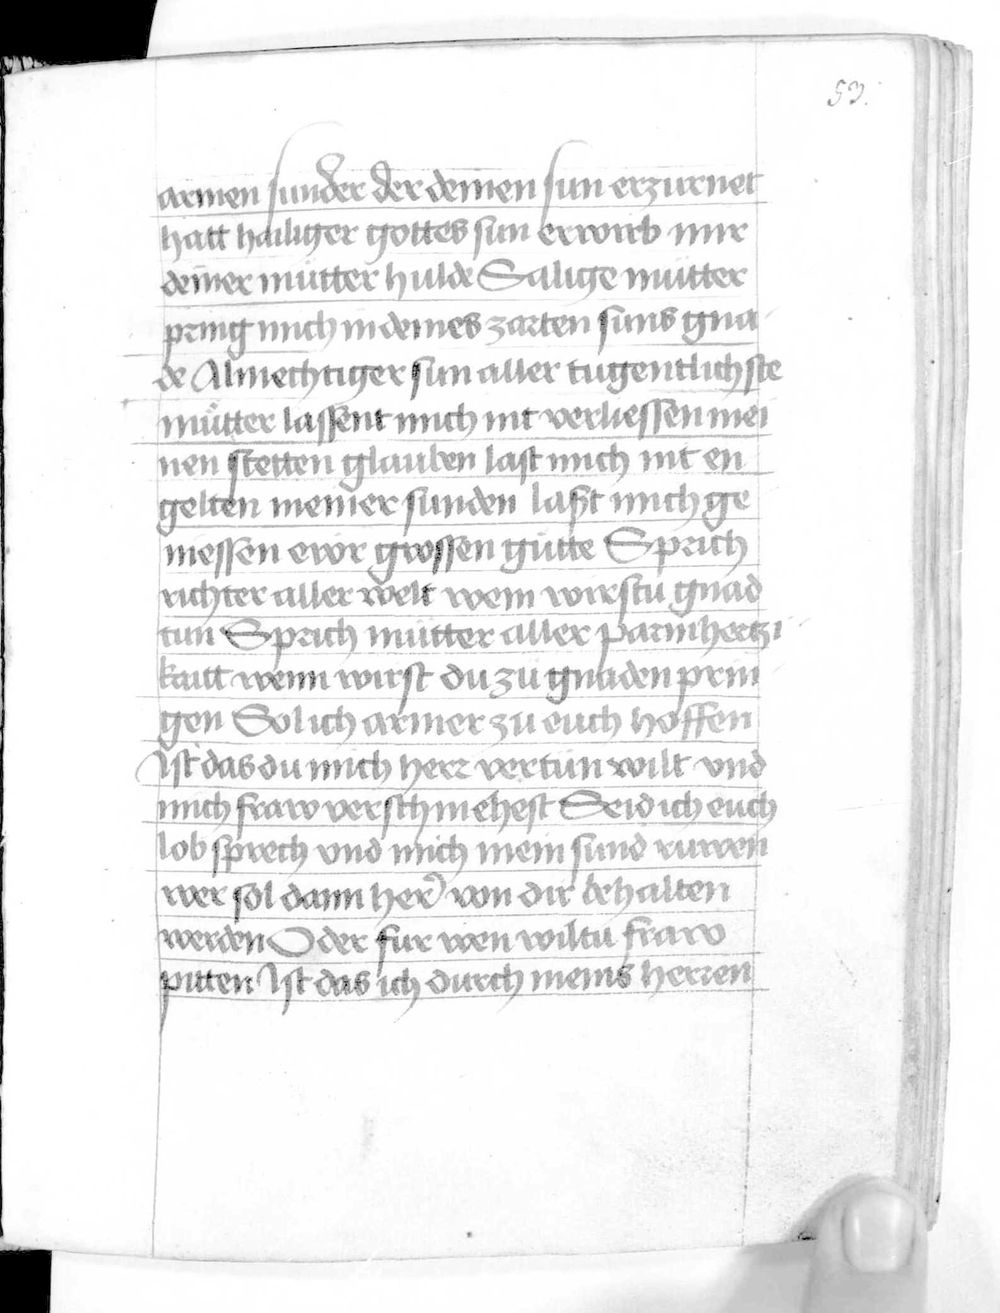 53.
armen sunder der deinen sun erzurnet
hatt hailiger gottes sun erwirb mir
deiner mütter hulde Salige mütter
pring mich in deines zarten suns gna
de Almechtiger sun aller tugentlichste
mütter lassent mich nit verliessen mei
nen stetten glauben last mich nit en
gelten meiner sunden last mich ge
niessen ewr grossen gütte Sprich
richter aller welt wem wirstu gnad
tun Sprich mütter aller parmhertzi
kait wenn wirst du zu gnaden prin
gen Sol ich armer zu euch hoffen
Ist das du mich herr vertün wilt vnd
mich fraw verschmehest Seid ich euch
lob sprech vnd mich mein sund ruwen
wer sol dann herr von dir behalten
werden Oder fur wen wiltu fraw
pitten Ist das ich durch meins herren